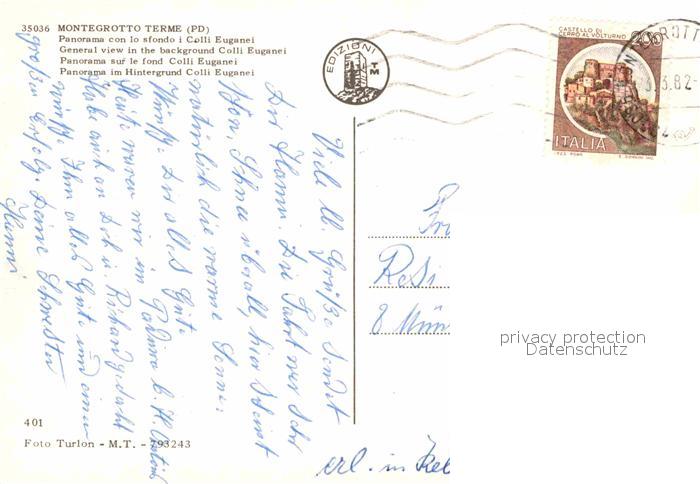 35036 MONTEGROTTO TERME (PD)
Panorama con lo sfondo i Colli Euganei
General view in the background Colli Euganei
Panorama sur le fond Colli Euganei
Panorama im Hintergrund Colli Euganei
EDIZIONI
TM
CASTELLO DI
CERRO AL VOLTURNO
200
ITALIA
3.82
Viele lb. Grüße sendet
Dir Hanni. Die Fahrt war sehr
Schnee überall, hier scheint
natürlich die warme Sonne.
Wünsche Dir alles Gute
Heute waren wir im Padua b. Hl. Antonius
Habe auch an Dich u. Richard gedacht
wünsche Ihm alles Gute und einen
großen Erfolg. Deine Schwester
Hanni
Resi
8 Mün
privacy protection
Datenschutz
401
Foto Turlon - M.T. - 793243